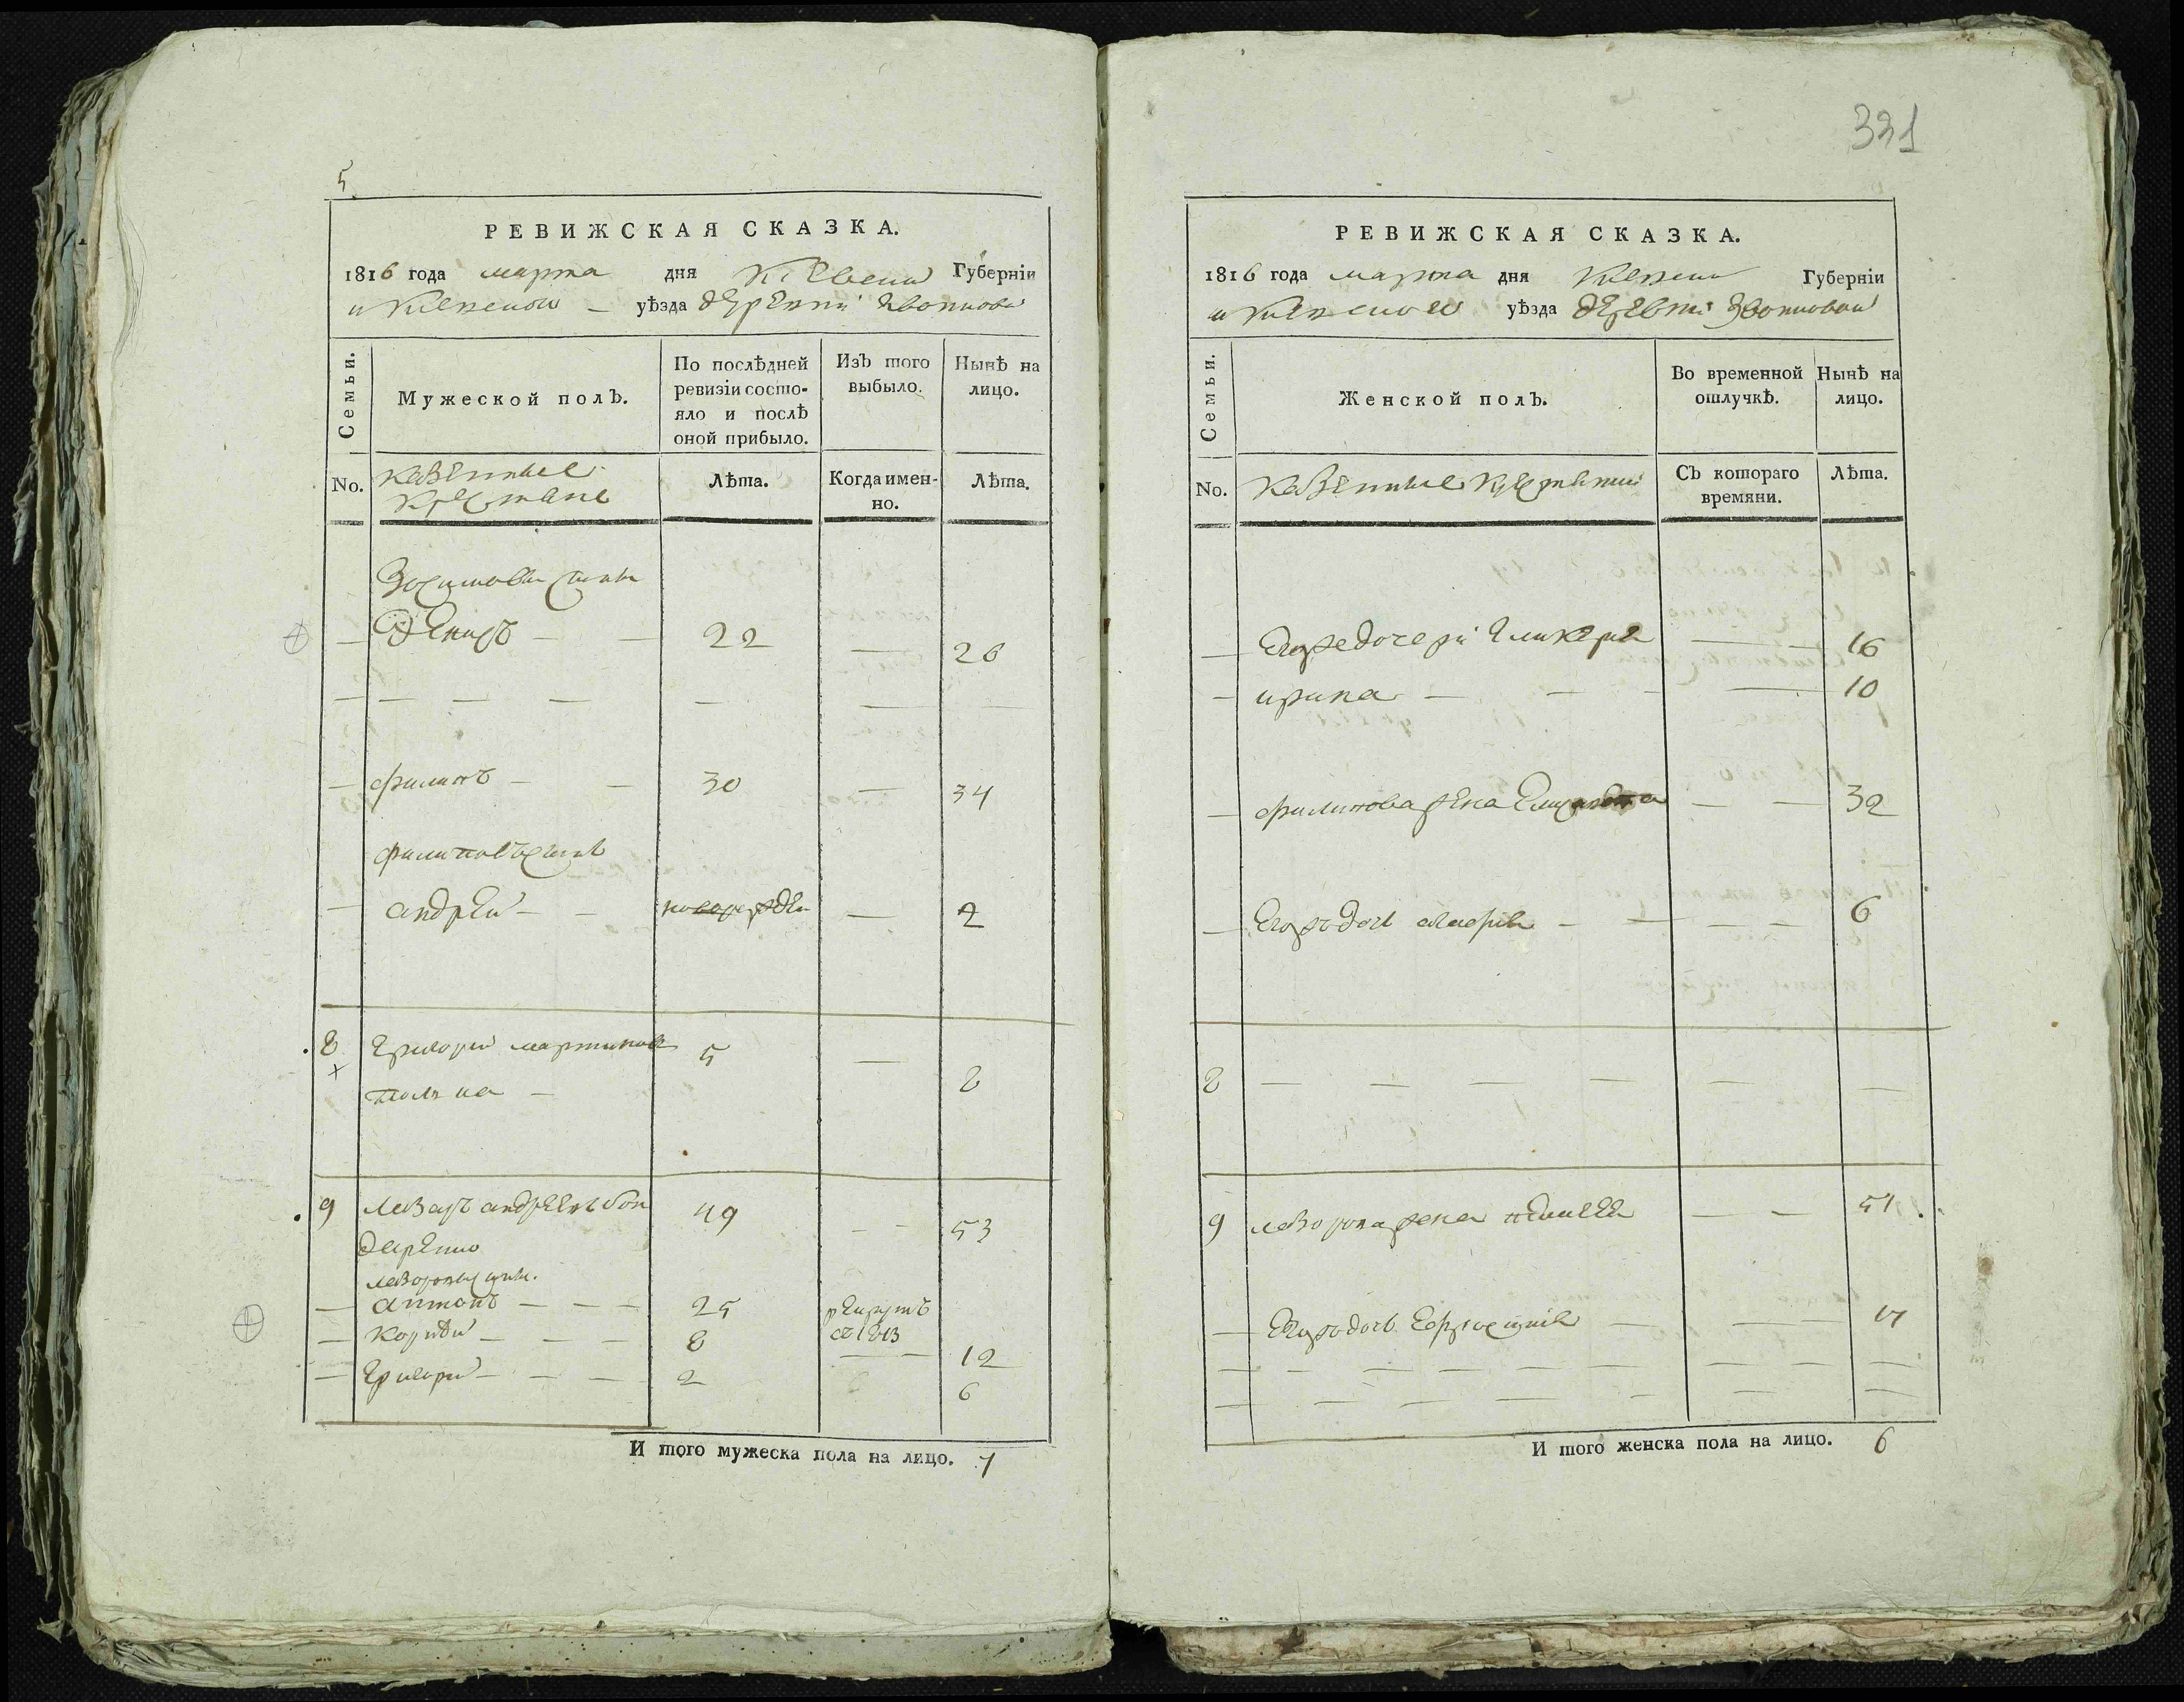 5
РЕВИЖСКАЯ СКАЗКА.
1816 года марта дня Киевской Губерніи
и Киевского уѣзда деревни Звонковой
Семьи.
Мужеской полъ.
По послѣдней ревизіи состояло и послѣ оной прибыло.
Изъ того выбыло.
Нынѣ на лицо.
No.
казенные
крестяне
Лѣта.
Когда именно.
Лѣта.
Зосимовы сыны
Денисъ 22 — 26
Филипъ 30 — 34
Филиповъ сынъ
Андрей новорожден — 2
8 Григорий Мартинов 5 — 8
9 Лазаръ Андреевъ Бон 49 — 53
даренко
Лазоровы сыны.
Антонъ 25 рекрутъ
въ 1813
Корнѣй 8 — 12
Григорий 2 6
И того мужеска пола на лицо. 7
331
РЕВИЖСКАЯ СКАЗКА.
1816 года марта дня Киевской Губерніи
и Киевского уѣзда деревни Звонковой
Семьи.
Женской полъ.
Во временной отлучкѣ.
Нынѣ на лицо.
No.
казенные крестянки
Съ котораго времяни.
Лѣта.
Егоже дочери Гликерия — 16
Ирина — 10
Филипова жена Елизавета — 32
Егожъ дочь Мария — 6
8
9 Лазорова жена Пелагея — 51
Егожъ дочь Ефросиния — 17
И того женска пола на лицо. 6